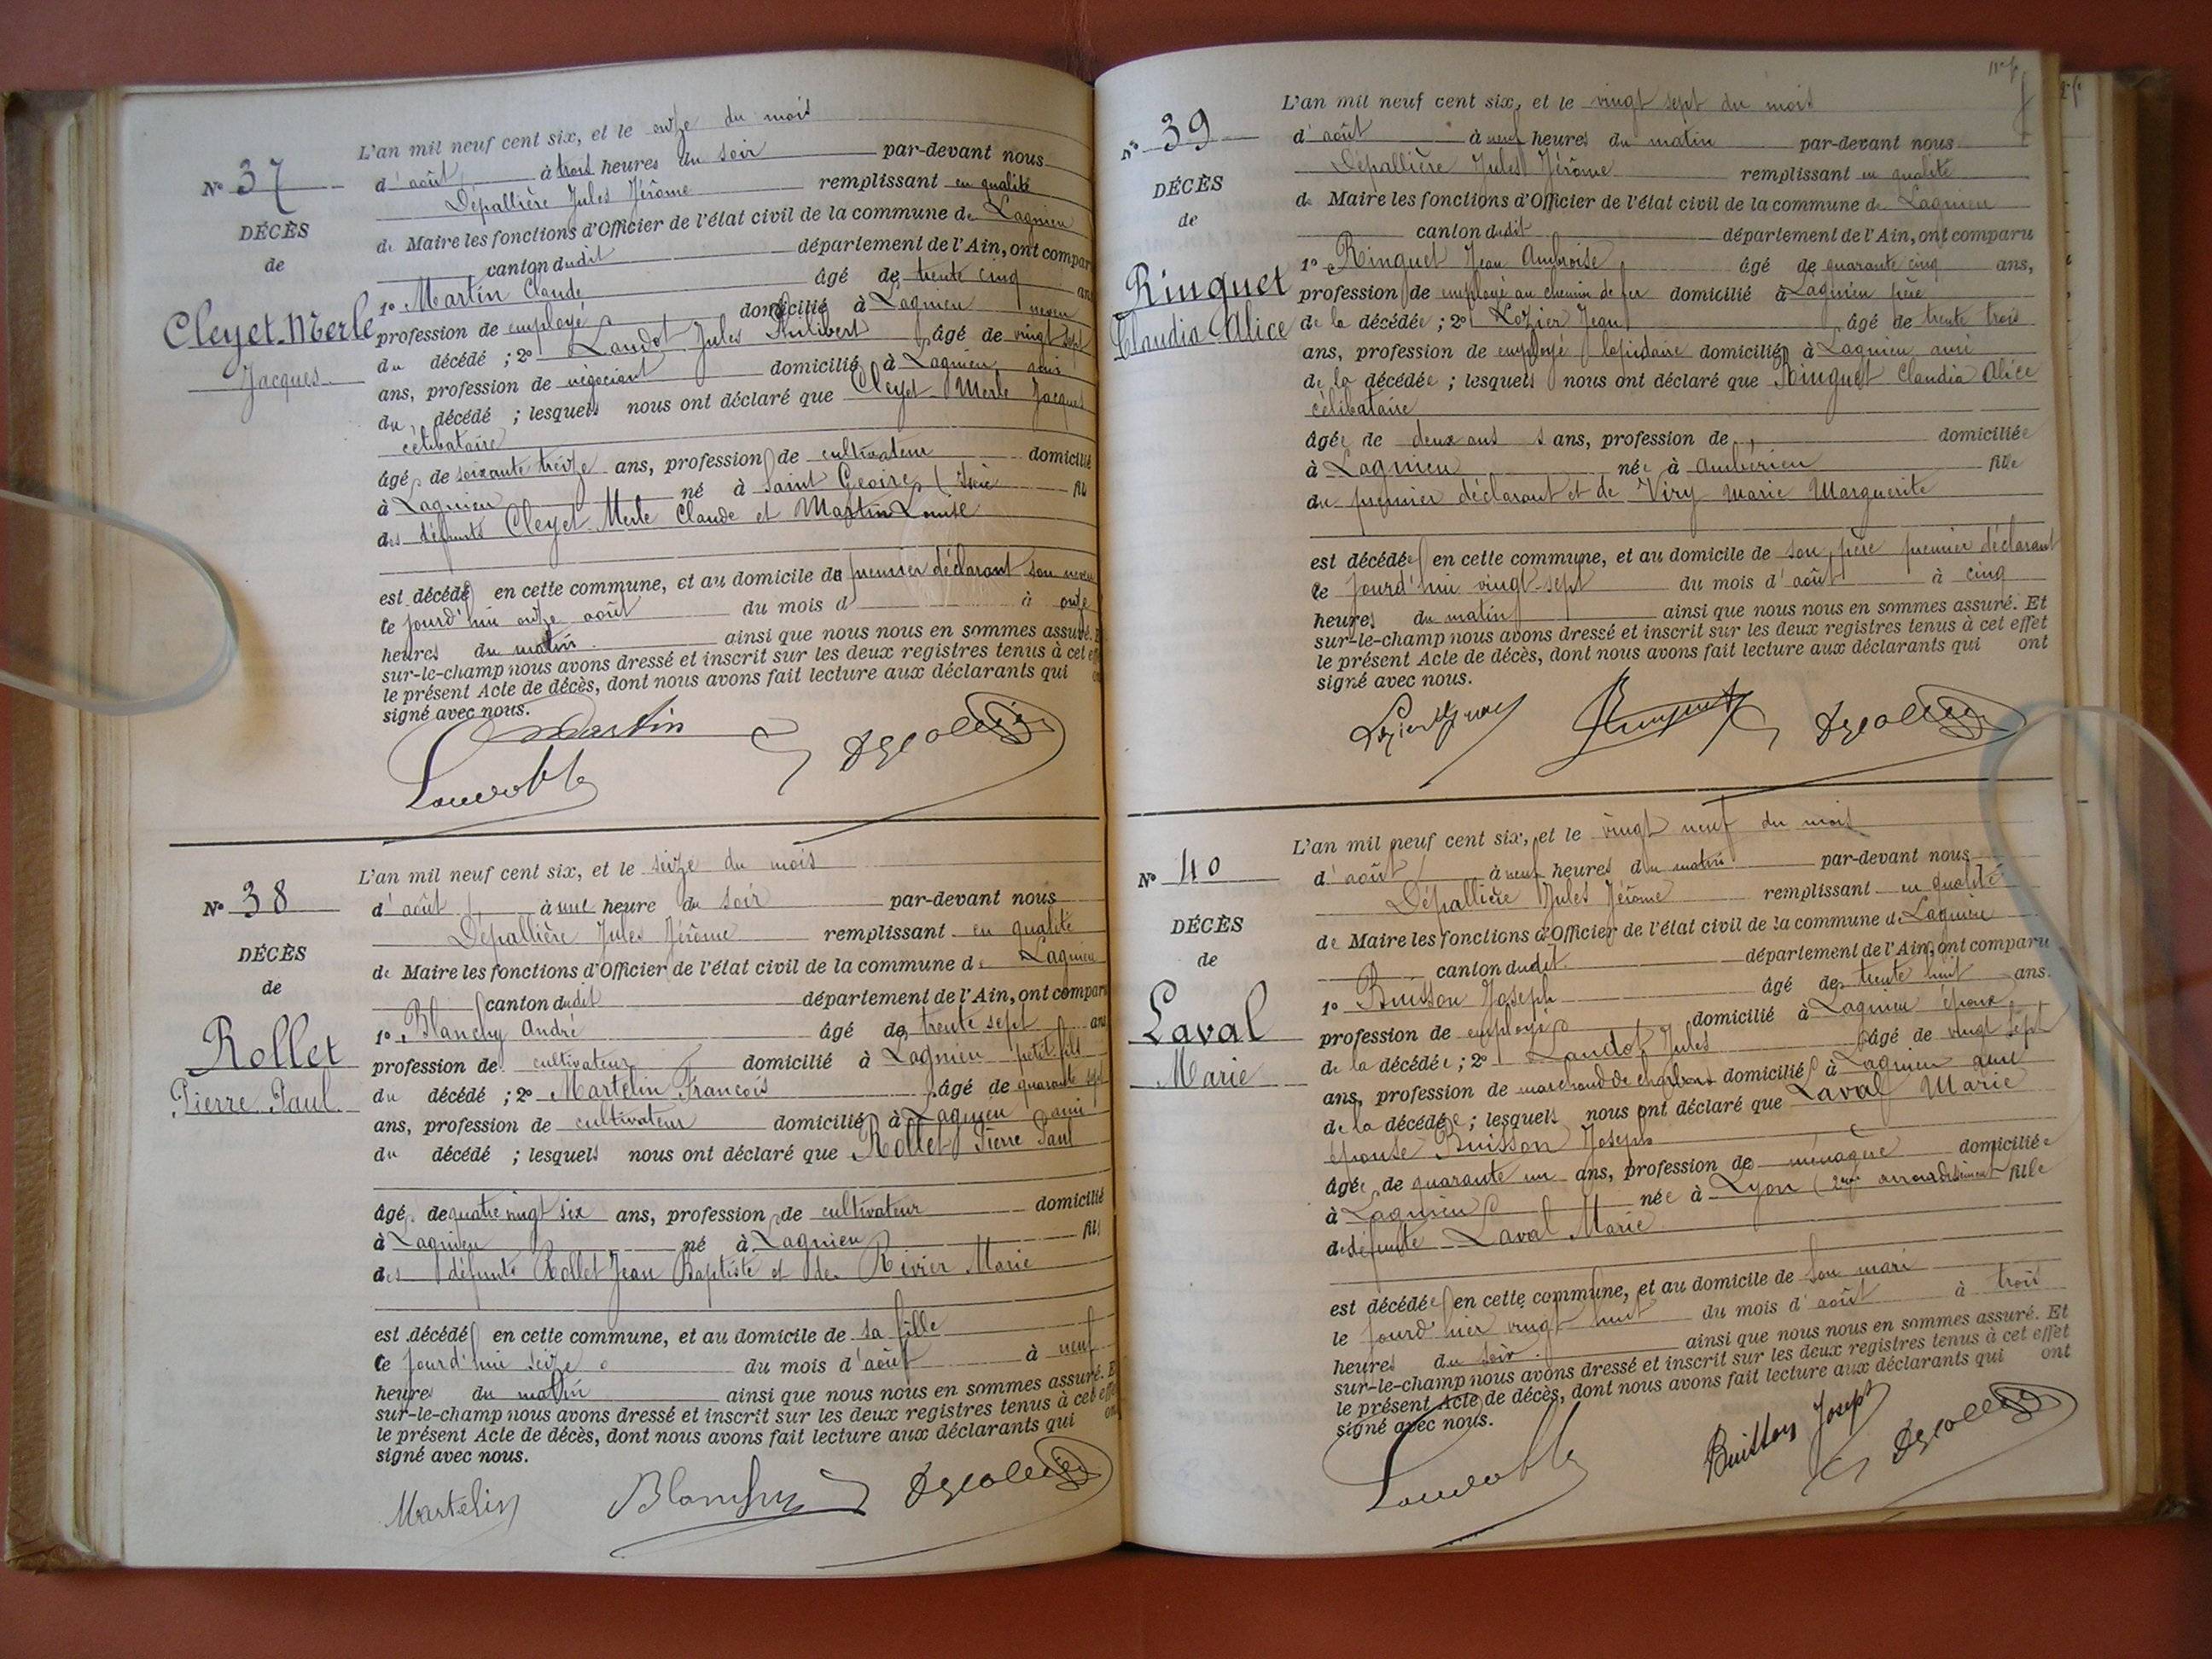 N° 37
DÉCÈS
de
Cleyet-Merle
Jacques
L'an mil neuf cent six, et le onze du mois
d'août à trois heures du soir par-devant nous
Dépallière Jules Jérôme remplissant en qualité
de Maire les fonctions d'Officier de l'état civil de la commune de Lagnieu
canton dudit département de l'Ain, ont compar
1° Martin Claude âgé de trente cinq ans
profession de employé domicilié à Lagnieu neveu
du décédé ; 2° Landot Jules Philibert âgé de vingt sept
ans, profession de négociant domicilié à Lagnieu, ami
du décédé ; lesquels nous ont déclaré que Cleyet-Merle Jacques
célibataire
âgé de soixante treize ans, profession de cultivateur domicilié
à Lagnieu né à Saint Geoire (Isère fils
des défunts Cleyet-Merle Claude et Martin Louise
est décédé en cette commune, et au domicile du premier déclarant son neveu
le jourd'hui onze août du mois d à onze
heures du matin ainsi que nous nous en sommes assuré. E
sur-le-champ nous avons dressé et inscrit sur les deux registres tenus à cet eff
le présent Acte de décès, dont nous avons fait lecture aux déclarants qui on
signé avec nous.
Martin
N° 38
DÉCÈS
de
Rollet
Pierre Paul
L'an mil neuf cent six, et le seize du mois
d'août à une heure du soir par-devant nous
Dépallière Jules Jérôme remplissant en qualité
de Maire les fonctions d'Officier de l'état civil de la commune de Lagnieu
canton dudit département de l'Ain, ont compar
1° Blanchy André âgé de trente sept ans
profession de cultivateur domicilié à Lagnieu petit fils
du décédé ; 2° Martelin François âgé de quarante sept
ans, profession de cultivateur domicilié à Lagnieu ami
du décédé ; lesquels nous ont déclaré que Rollet Pierre Paul
âgé de quatre vingt six ans, profession de cultivateur domicilié
à Lagnieu né à Lagnieu fils
des défunts Rollet Jean Baptiste et de Rivier Marie
est décédé en cette commune, et au domicile de sa fille
le jourd'hui seize du mois d'août à neuf
heures du matin ainsi que nous nous en sommes assuré. E
sur-le-champ nous avons dressé et inscrit sur les deux registres tenus à cet effe
le présent Acte de décès, dont nous avons fait lecture aux déclarants qui on
signé avec nous.
Martelin Blanchy
N° 39
DÉCÈS
de
Ringuet
Claudia Alice
L'an mil neuf cent six, et le vingt sept du mois
d'août à neuf heures du matin par-devant nous
Dépallière Jules Jérôme remplissant en qualité
de Maire les fonctions d'Officier de l'état civil de la commune de Lagnieu
canton dudit département de l'Ain, ont comparu
1° Ringuet Jean Ambroise âgé de quarante cinq ans,
profession de employé au chemin de fer domicilié à Lagnieu père
de la décédée ; 2° Lozier Jean âgé de trente trois
ans, profession de employé lapidaire domicilié à Lagnieu ami
de la décédée ; lesquels nous ont déclaré que Ringuet Claudia Alice
célibataire
âgée de deux ans s ans, profession de domiciliée
à Lagnieu née à Ambérieu fille
du premier déclarant et de Viry Marie Marguerite
est décédée en cette commune, et au domicile de son père premier déclarant
le jourd'hui vingt-sept du mois d'août à cinq
heures du matin ainsi que nous nous en sommes assuré. Et
sur-le-champ nous avons dressé et inscrit sur les deux registres tenus à cet effet
le présent Acte de décès, dont nous avons fait lecture aux déclarants qui ont
signé avec nous.
N° 40
DÉCÈS
de
Laval
Marie
L'an mil neuf cent six, et le vingt neuf du mois
d'août à neuf heures du matin par-devant nous
Dépallière Jules Jérôme remplissant en qualité
de Maire les fonctions d'Officier de l'état civil de la commune de Lagnieu
canton dudit département de l'Ain, ont comparu
1° Buisson Joseph âgé de trente huit ans.
profession de employé domicilié à Lagnieu époux
de la décédée ; 2° Landot Jules âgé de vingt sept
ans, profession de marchand de charbons domicilié à Lagnieu ami
de la décédée ; lesquels nous ont déclaré que Laval Marie
épouse Buisson Joseph
âgée de quarante un ans, profession de ménagère domiciliée
à Lagnieu née à Lyon (2me arrondissement fille
de défunte Laval Marie
est décédée en cette commune, et au domicile de son mari
le jourd'hier vingt huit du mois d'août à trois
heures du soir ainsi que nous nous en sommes assuré. Et
sur-le-champ nous avons dressé et inscrit sur les deux registres tenus à cet effet
le présent Acte de décès, dont nous avons fait lecture aux déclarants qui ont
signé avec nous.
Buisson Joseph